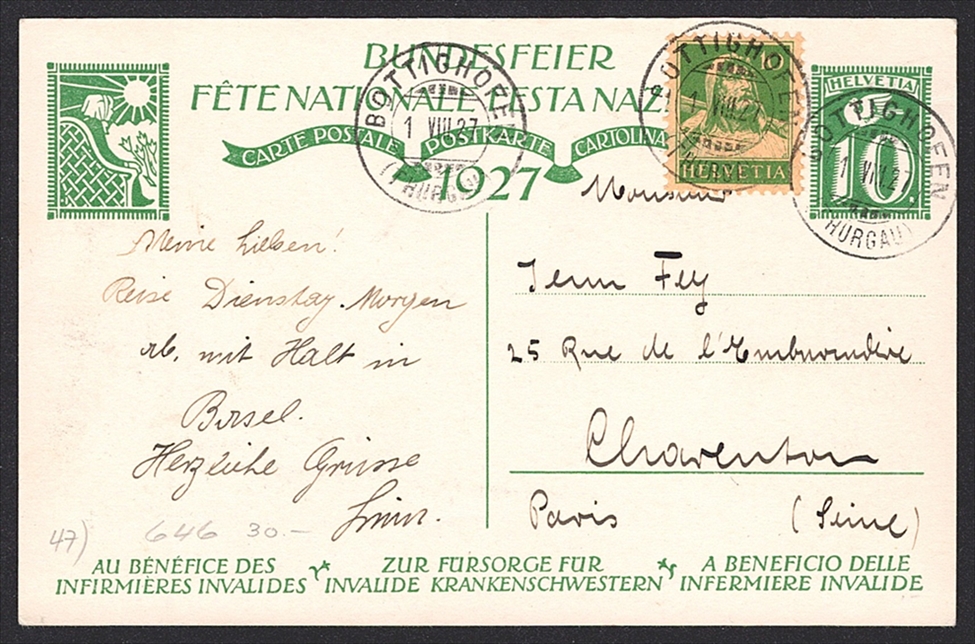 BUNDESFEIER
FÊTE NATIONALE FESTA NAZ
CARTE POSTALE POSTKARTE CARTOLINA
1927
BOTTIGHOFEN
1 VIII.27
(THURGAU)
BOTTIGHOFEN
1 VIII.27
HELVETIA
HELVETIA
10
BOTTIGHOFEN
1 VIII.27
(THURGAU)
Meine Lieben!
Reise Dienstag-Morgen
ab, mit Halt in
Basel.
Herzliche Grüsse
Monsieur
Jean Fey
25 Rue de
Charenton
Paris (Seine)
47) 646 30.-
AU BÉNÉFICE DES
INFIRMIÈRES INVALIDES
ZUR FÜRSORGE FÜR
INVALIDE KRANKENSCHWESTERN
A BENEFICIO DELLE
INFERMIERE INVALIDE